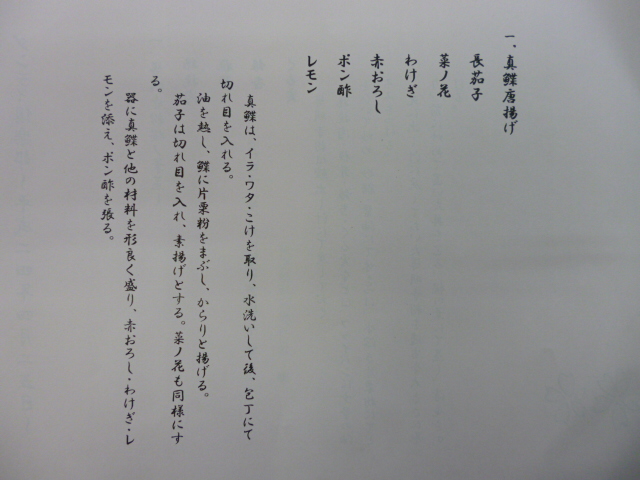 一、真鰈唐揚げ
長茄子
菜ノ花
わけぎ
赤おろし
ポン酢
レモン
真鰈は、イラ・ワタ・こけを取り、水洗いして後、包丁にて
切れ目を入れる。
油を熱し、鰈に片栗粉をまぶし、からりと揚げる。
茄子は切れ目を入れ、素揚げとする。菜ノ花も同様にす
る。
器に真鰈と他の材料を形良く盛り、赤おろし・わけぎ・レ
モンを添え、ポン酢を張る。